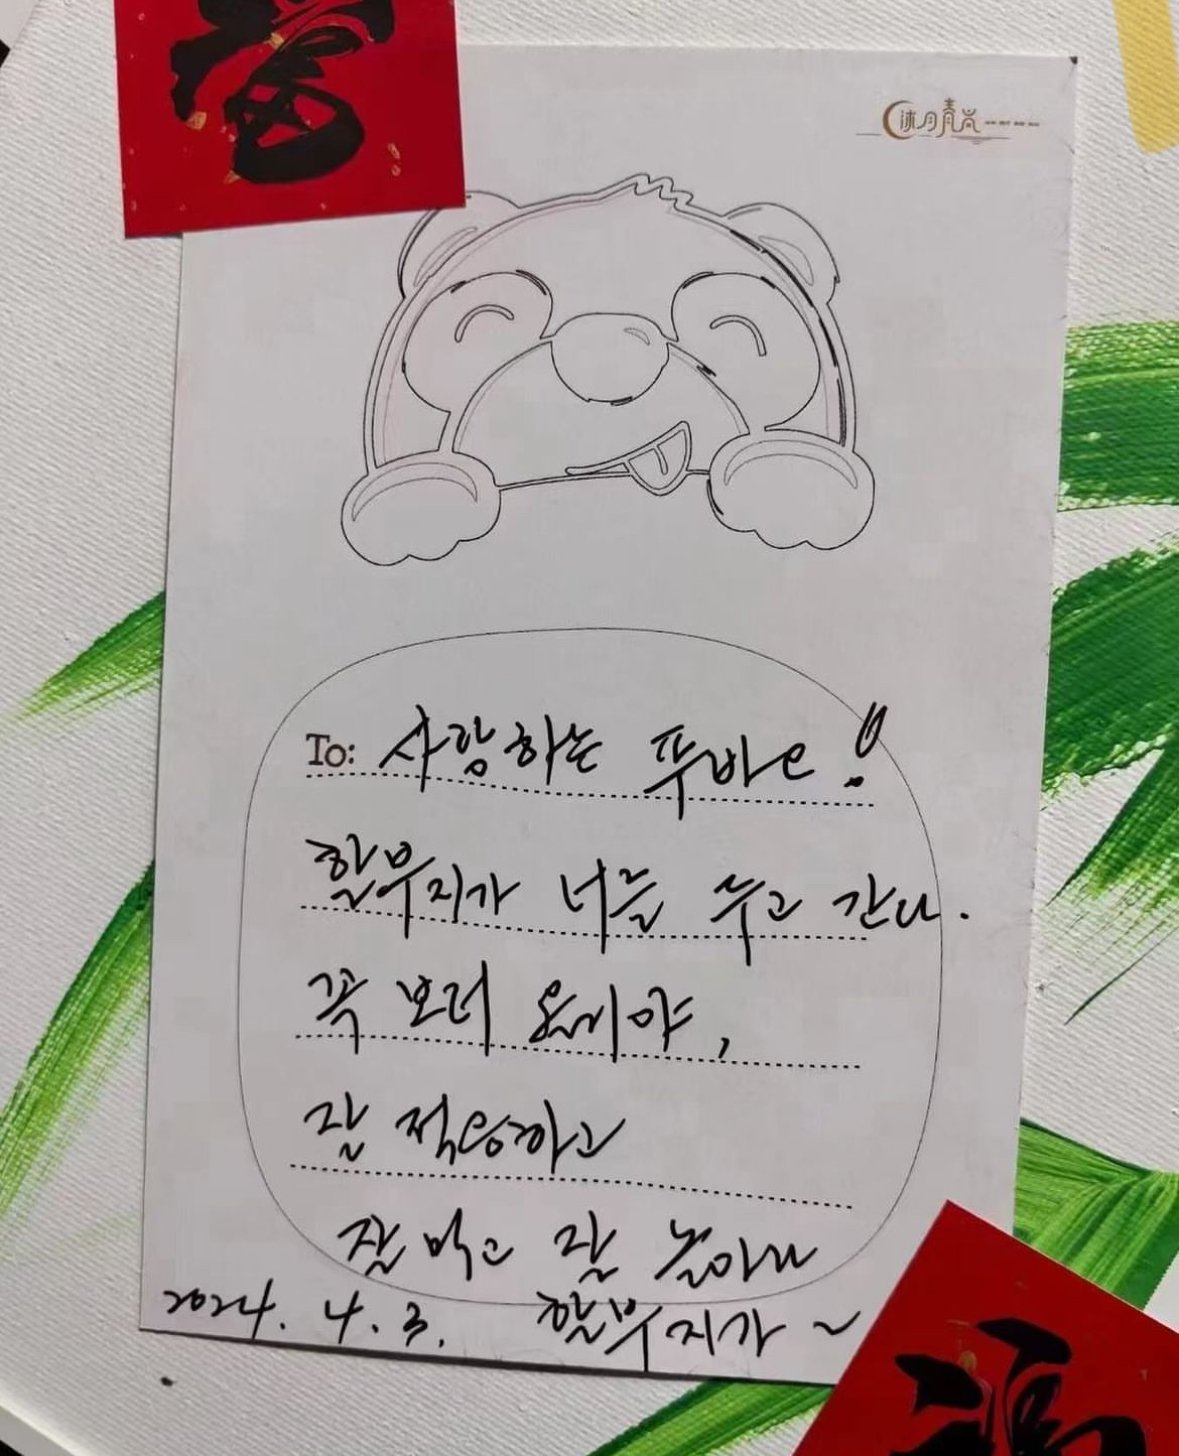 沐月青岚
To: 사랑하는 푸바오!
할부지가 너를 두고 간다.
꼭 보러 올거야,
잘 적응하고
잘 먹고 잘 놀아라
2024. 4. 3. 할부지가 ~
福